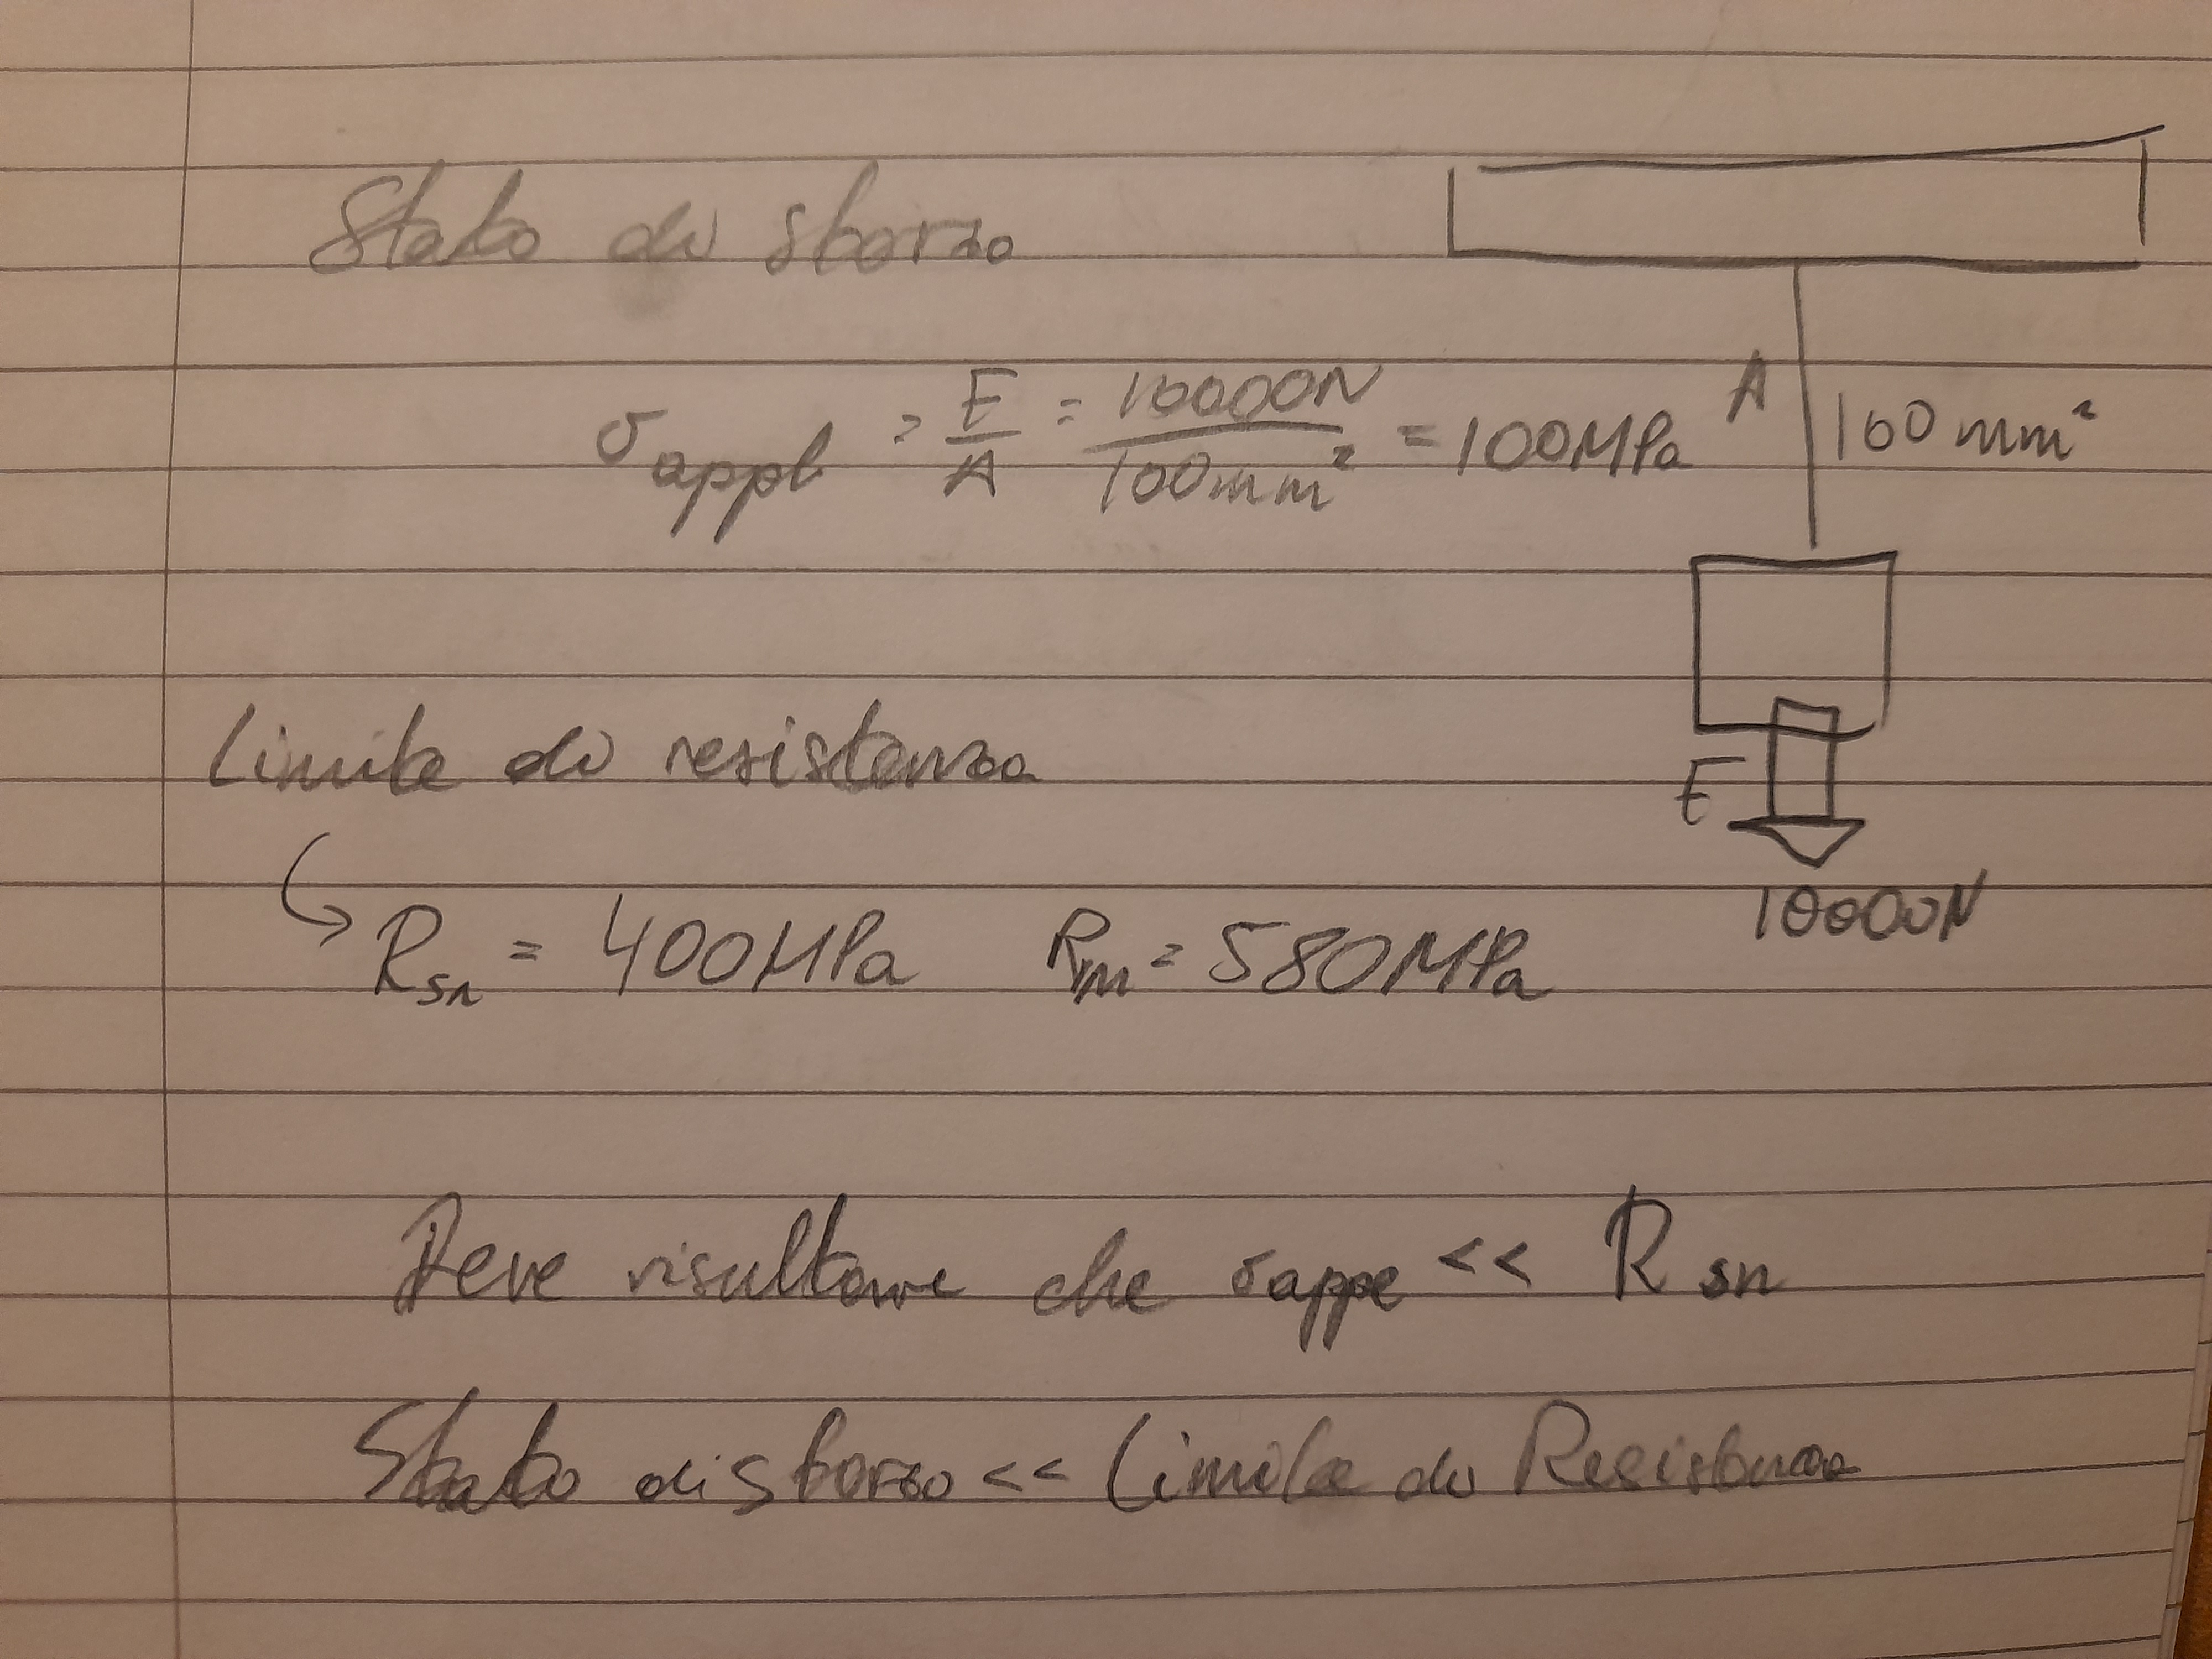 Stato di sforzo
σappl = F/A = 10000N/100mm² = 100MPa
A 100mm²
F
10000N
Limite di resistenza
Rsn = 400MPa Rm = 580MPa
Deve risultare che σappl << Rsn
Stato di sforzo << Limite di Resistenza